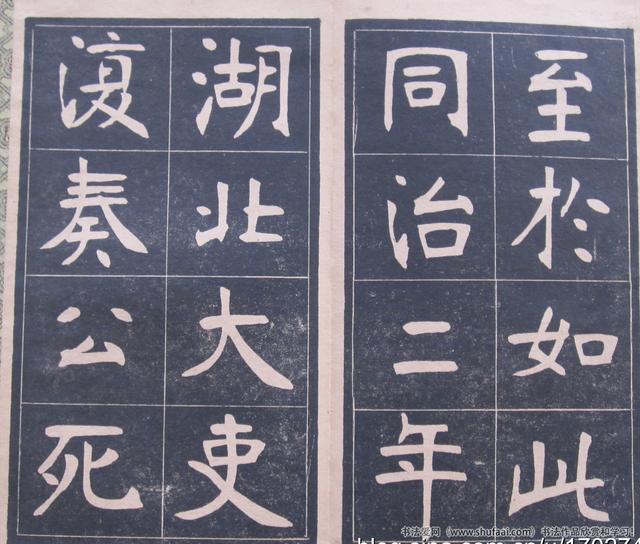 至於如此
同治二年
湖北大吏
復奏公死
书法爱网（www.shufaai.com）书法作品欣赏和学习！